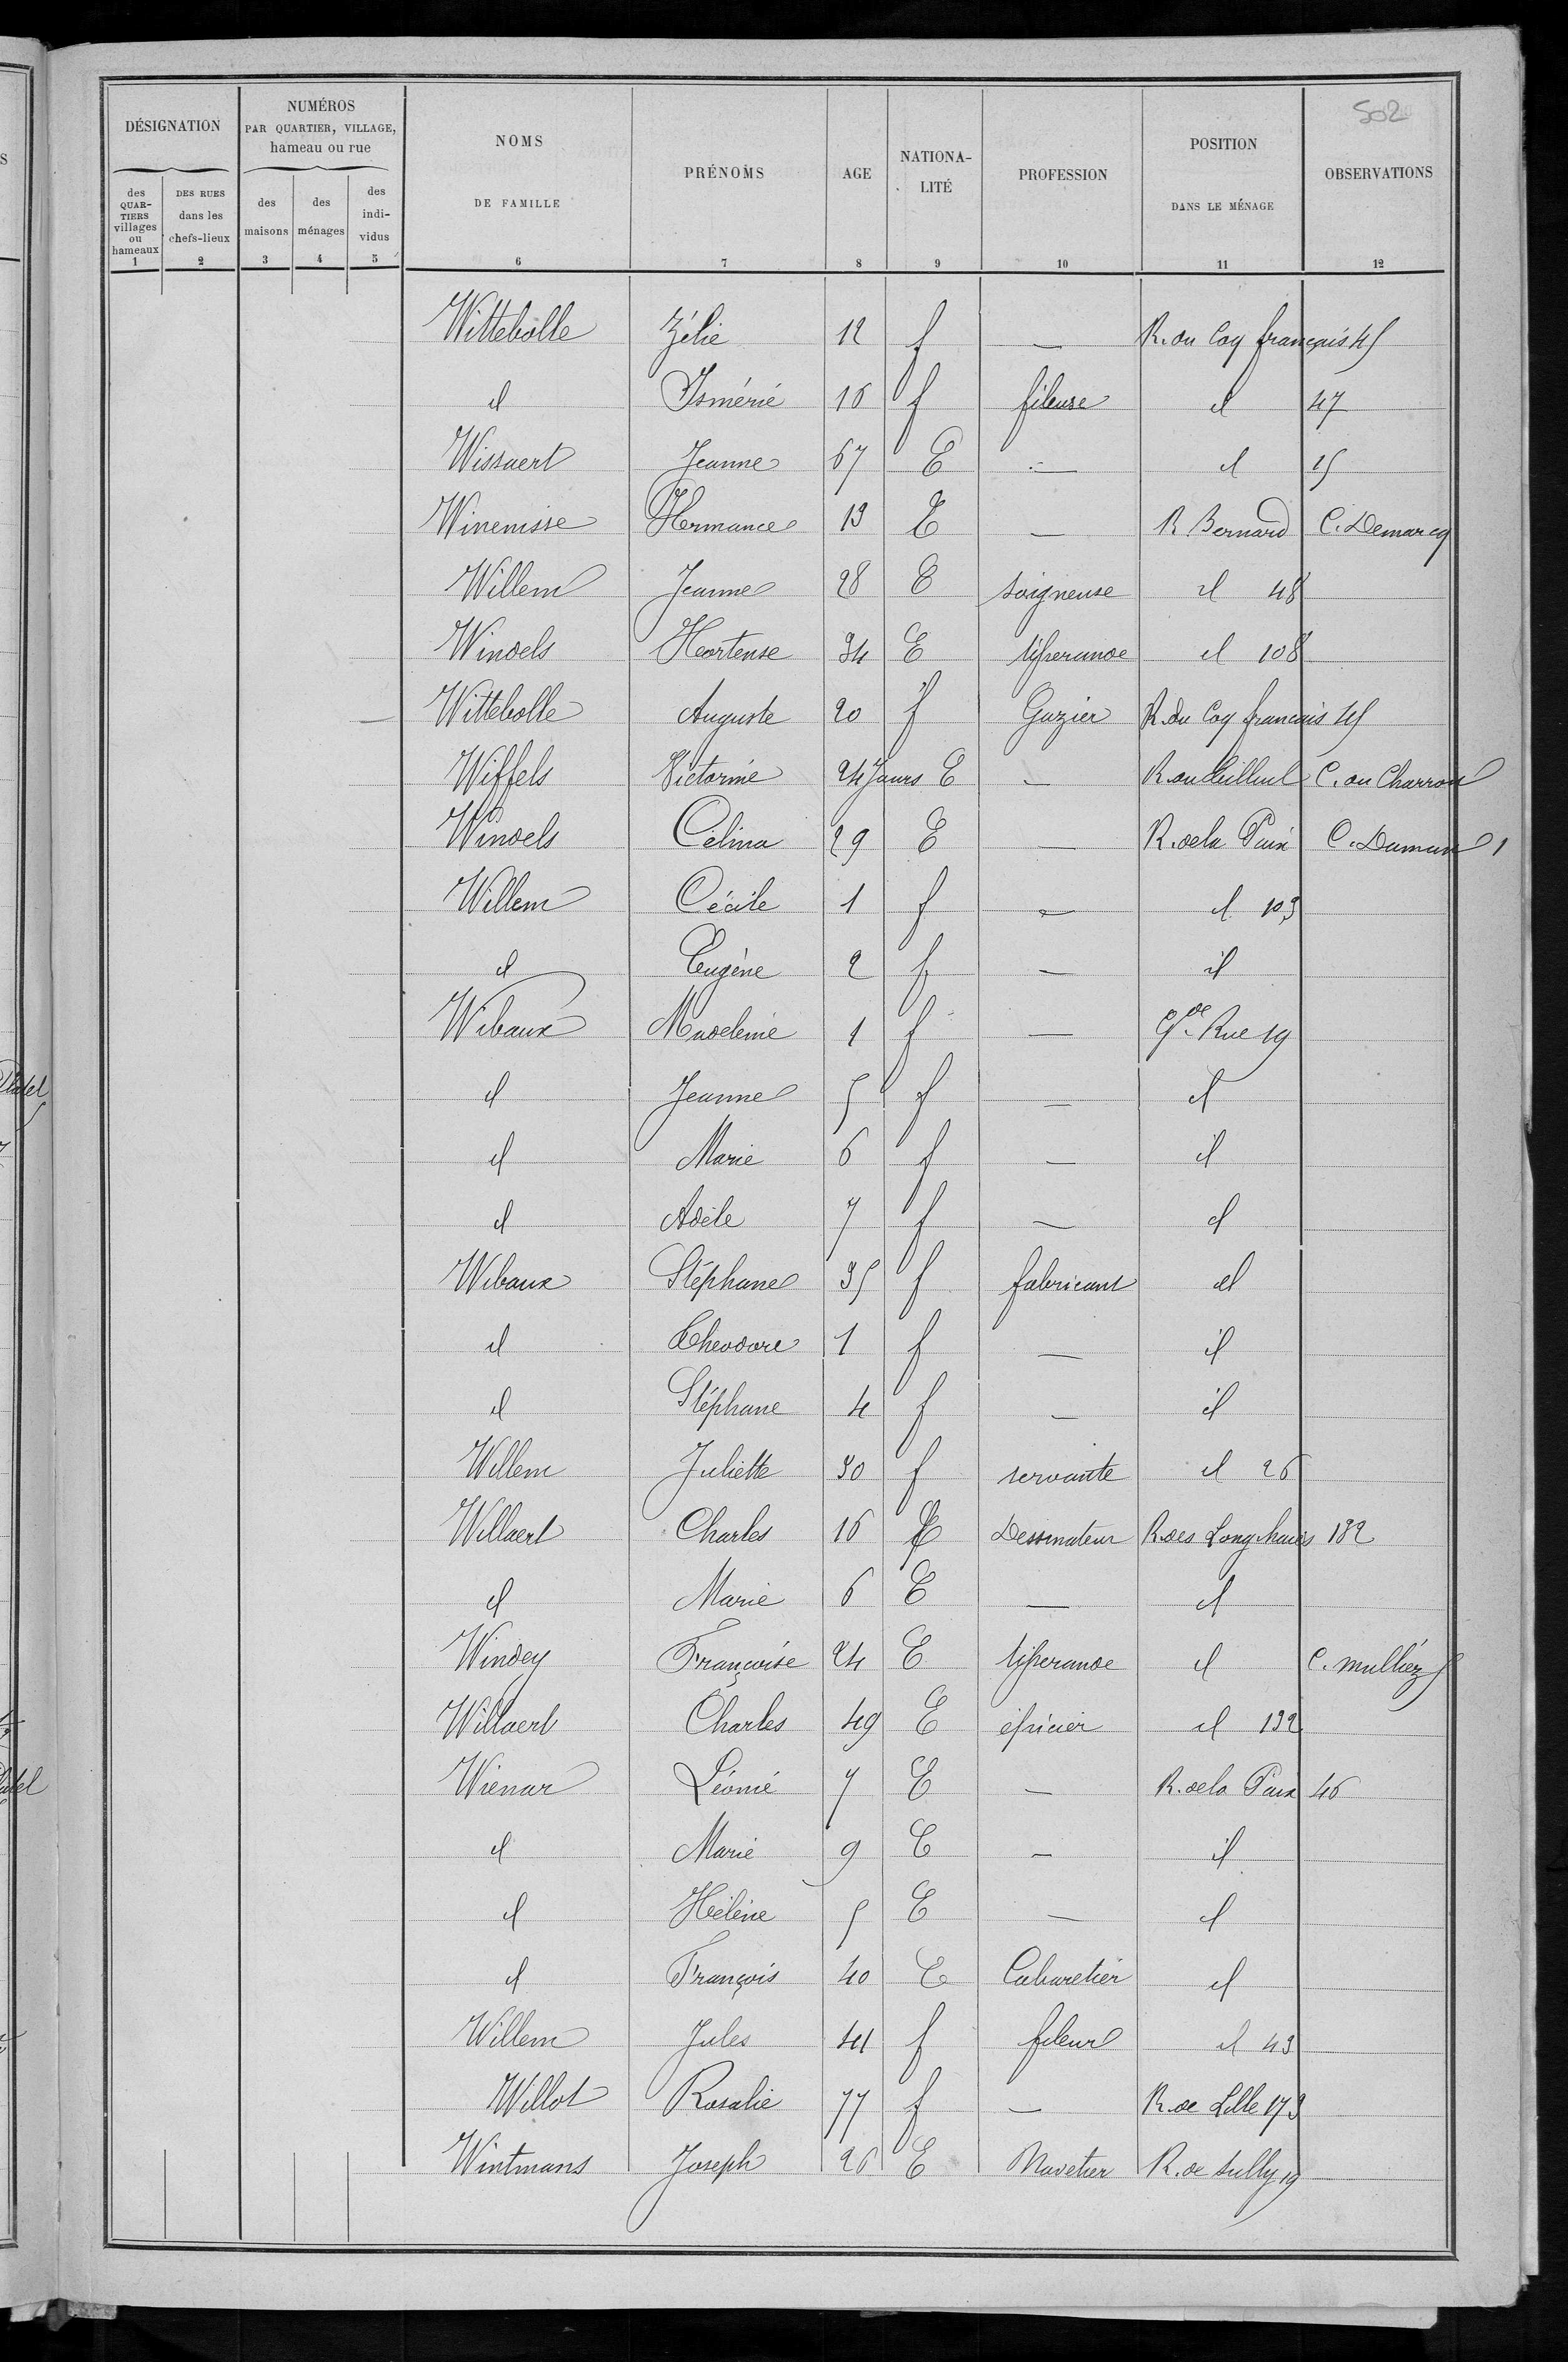 502
DÉSIGNATION NUMÉROS PAR QUARTIER, VILLAGE, hameau ou rue NOMS DE FAMILLE PRÉNOMS AGE NATIONA-LITÉ PROFESSION POSITION DANS LE MÉNAGE OBSERVATIONS
des QUAR-TIERS villages ou hameaux DES RUES dans les chefs-lieux des maisons des ménages des indi-vidus
1 2 3 4 5 6 7 8 9 10 11 12
Wittebolle Zélie 12 f — R. du Coq français 45
id Isménie 16 f fileuse id 47
Wissaert Jeanne 67 E — id 15
Winenisse Hermance 13 E — R Bernard C. Demarcq
Willem Jeanne 28 E soigneuse id 48
Windels Hortense 34 E tisserande id 108
Wittebolle Auguste 20 f Gazier R. du Coq francais 45
Wiffels Victorine 24 Jours E — R. du tilleul C. du Charron
Windels Célina 29 E — R. de la Paix C. 1
Willem Cécile 1 f — id 103
id Eugène 2 f — id
Wibaux Madeleine 1 f — Gde Rue 19
id Jeanne 5 f — id
id Marie 6 f — id
id Adèle 7 f — id
Wibaux Stéphane 35 f fabricant id
id Théodore 1 f — id
id Stéphane 4 f — id
Willem Juliette 30 f servante id 26
Willaert Charles 16 E Dessinateur R. des Longhaies 132
id Marie 6 E — id
Windey Françoise 24 E tisserande id C. Mulliez 5
Willaert Charles 49 E épicier id 132
Wienar Léonie 7 E — R. de la Paix 46
id Marie 9 E — id
id Hélène 5 E — id
id François 40 E Cabaretier id
Willem Jules 41 f fileur id 43
Willot Rosalie 77 f — R. de Lille 173
Wintmans Joseph 26 E Navetier R. de Sully 19